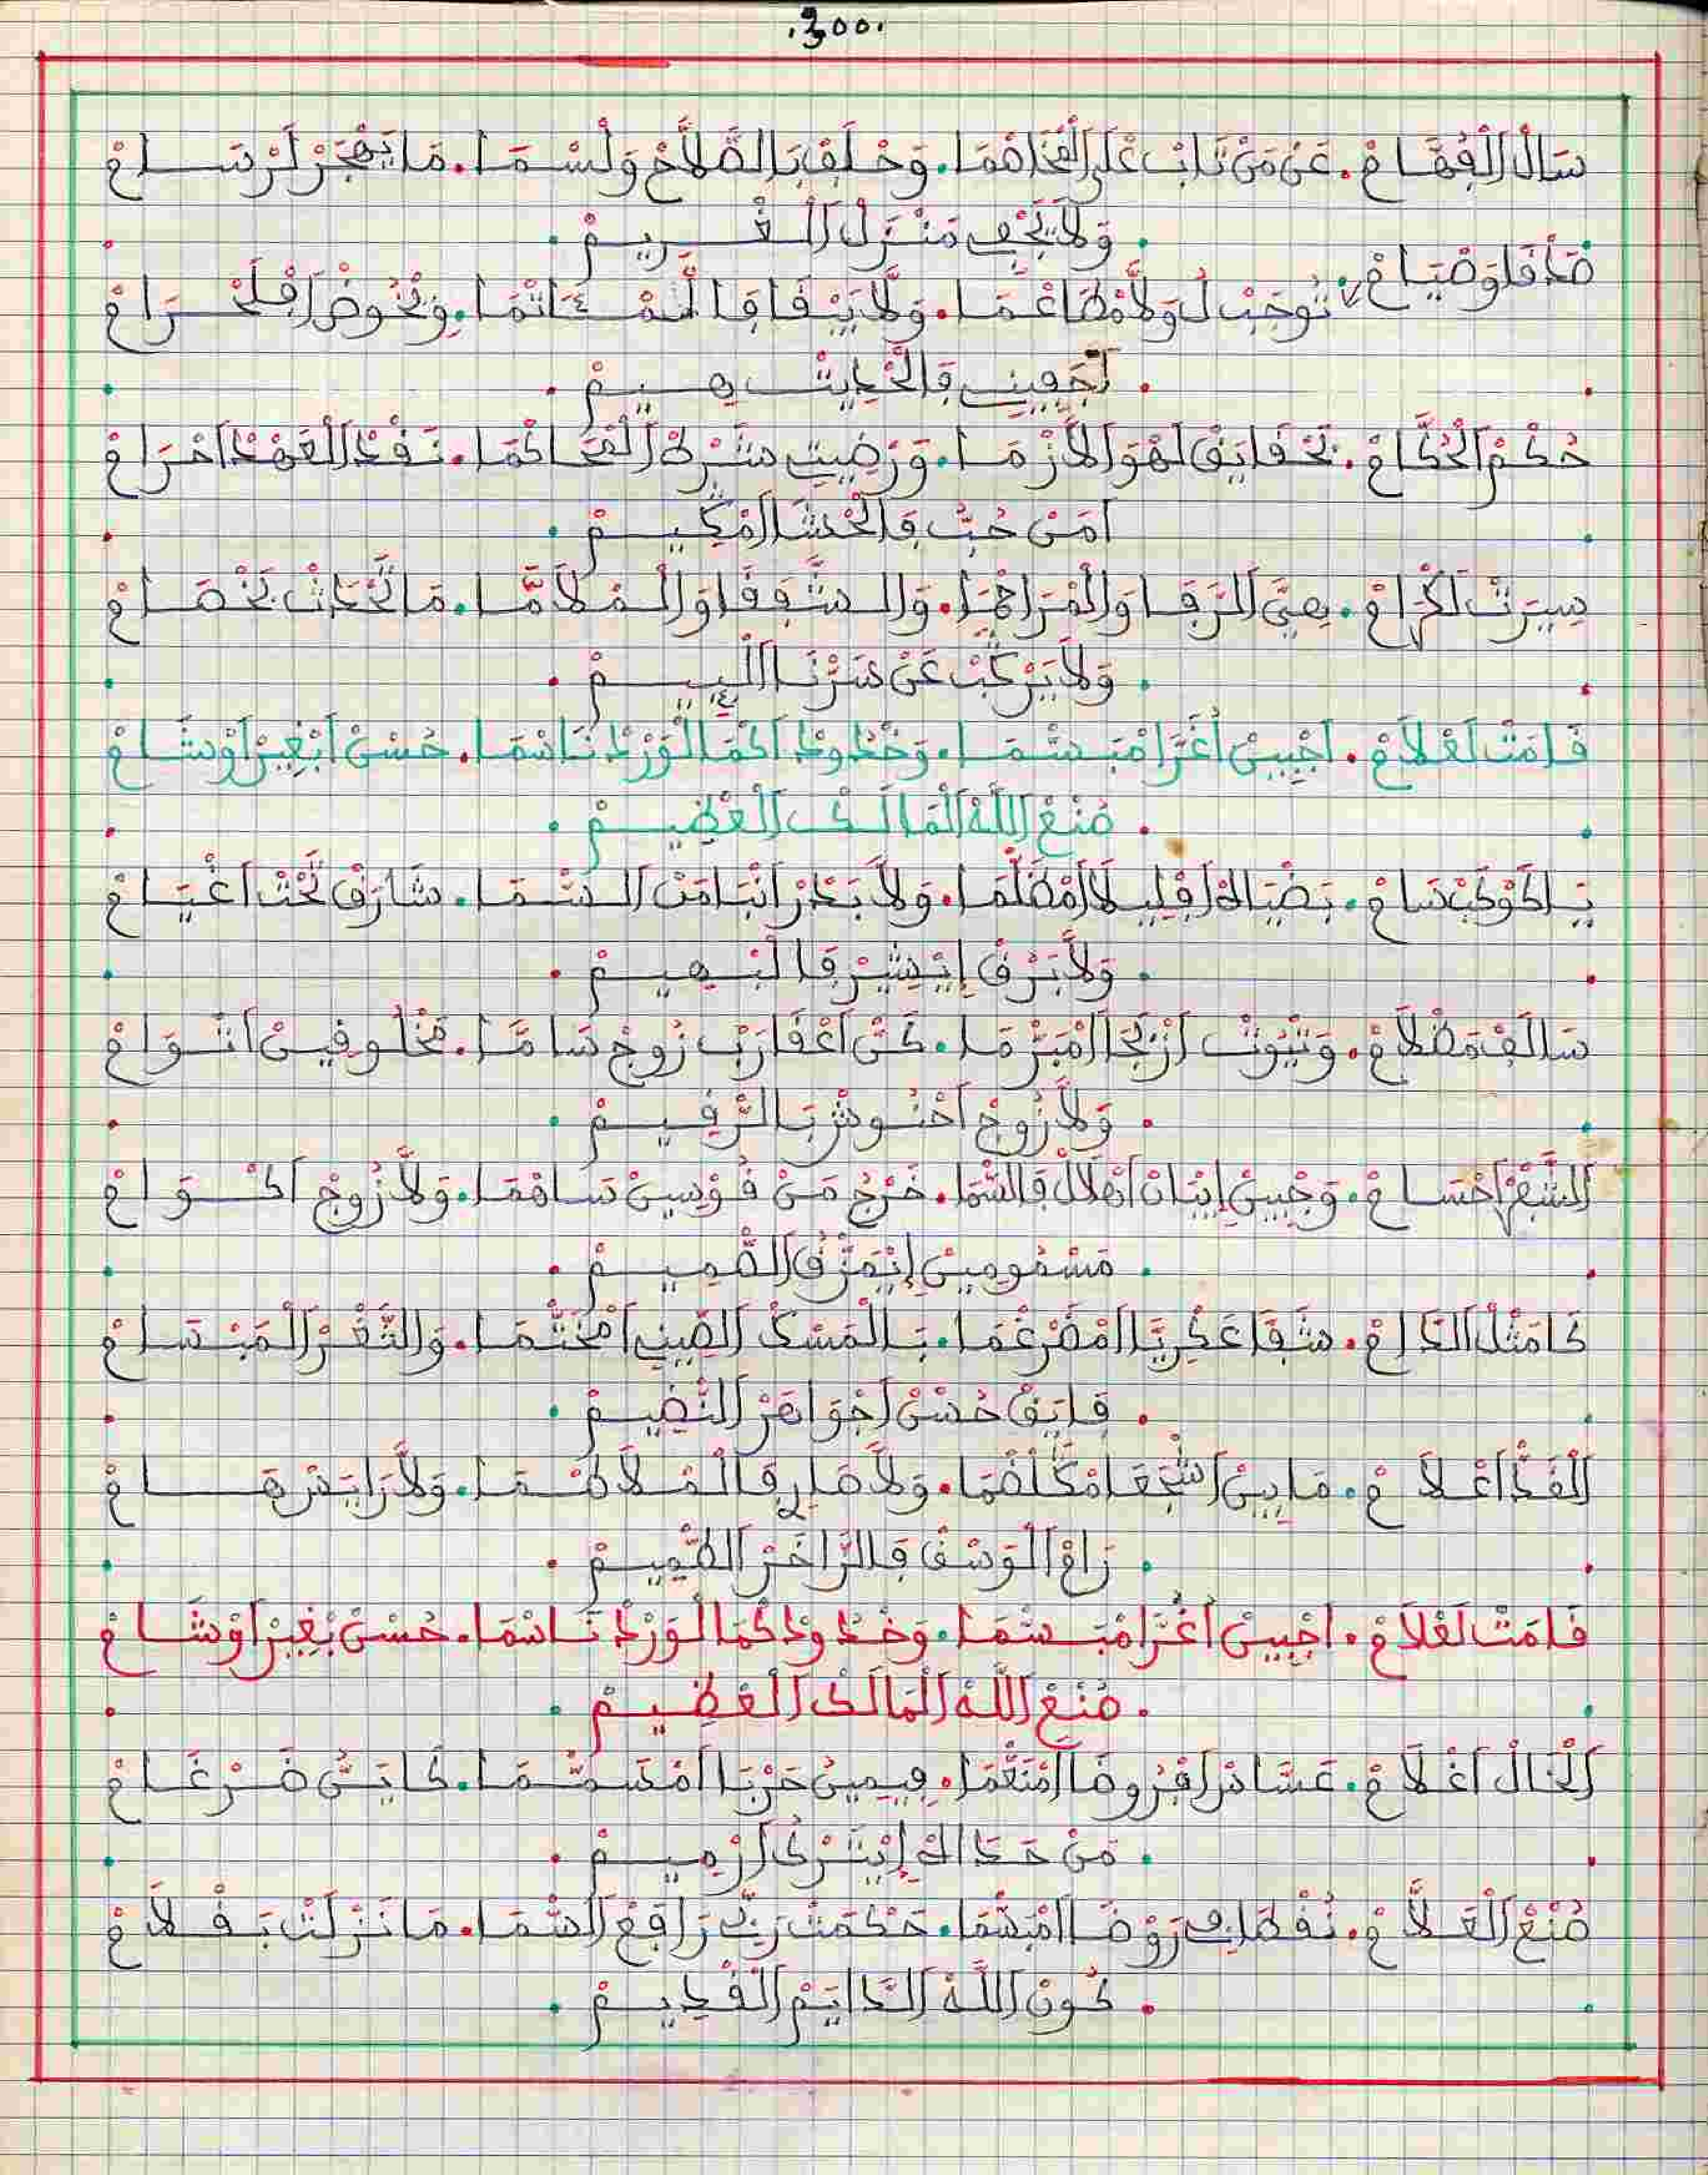 .300.
سَالْ الْفُهَّامْ . عَنْ مَنْ تَابْ عْلَى الْخَاصْمَا . وَحْلَفْ بَالصّْلَاحْ وَلَسْمَا . مَا يَهْجَرْ لَرْسَامْ
. وَلَا يَجْفِي مَنْزَلْ الْغْرِيمْ .
صَدْقَا وَصْيَامْ . تُوجَبْ لُ وَلَا مْطَاعْمَا . وَلَّا يَبْقَا فَا لْمْـَٔاتْمَا . وِيْخُوضْ افْلَحْرَامْ
. اجَبِينِي فَالْحْدِيثْ هِيمْ .
حُكْمْ الْحُكَّامْ . بَحْقَايَقْ لَهْوَا لَازْمَا . وَرْضِيتْ شَرْكْ الْمْحَاكْمَا . نَقْدْ الْعَهْدْ احْرَامْ
امَنْ حُبُّ فَالْحْشَا امْكِيمْ .
سِيرَتْ لَكْرَامْ . هِيَّ الرَّفَا وَالْمْرَاحْمَا . وَالشَّفْقَا وَالْمُلَامَّا . مَا تَّحْدَاتْ بَخْصَامْ
. وَلَا يَرْكَبْ عَنْ سَرْنَا اللّْيِيمْ .
قَامَتْ لَعْلَامْ . اجْبِينْ اغَرَّا مْبَسْمَا . وَخْدُودْ اكْمَا لْوَرْدْ نَاسْمَا . حُسْنْ ابْغِيرْ اوْشَامْ
. صُنْعْ اللَّهْ الْمَالَكْ الْعْظِيمْ .
يَا لْكَوْكَبْ سَامْ . بَضْيَاكْ افْلِيلَا امْظَلْمَا . وَلَّا بَدْرْ انْبَا مَنْ السّْمَا . شَارَقْ تَحْتْ اغْيَامْ
. وَلَّا بَرْقْ إِيْشِيرْ فَا لَبْهِيمْ .
سَالَفْ مَظْلَامْ . وَتْيُوتْ ازْنْجَا امْبَرْمَا . كَنْ اعْقَارَبْ زُوجْ سَامَّا . مَخْلُوفِينْ اتْوَامْ
. وَلَّا زُوجْ احْنُوشْ بَالرّْقِيمْ .
الشَّفْرْ احْسَامْ . وَجْبِينْ إِيْبَانْ اهْلَالْ فَالسّْمَا . خَرْجُ مَنْ قُوسِينْ سَاهْمَا . وَلَّا زُوجْ اكْوَامْ
. مَسْمُومِينْ إِيْمَزّْقُ الصّْمِيمْ .
كَامَثْلْ الدَّامْ . شَفَّا عَكْرِيَّا امْضَرْغْمَا . بَالْمَسْكْ الصِّينِي امْخَتّْمَا . وَالتَّغْرْ الْمَبْسَامْ
. فَايَقْ حُسْنْ اجْوَاهَرْ النّْضِيمْ .
الْقَدّْ اعْلَامْ . مَابِينْ اشْجَعَا مْكَلّْضْمَا . وَلَّا صَارِي فَالْمْلَاطْمَا . وَلَّا رَايَسْ هَامْ
. رَامْ الْوَسْقْ فَالزَّاخَرْ الطّْمِيمْ .
قَامَتْ لَعْلَامْ . اجْبِينْ اغَرَّا مْبَسْمَا . وَخْدُودْ كْمَا لْوَرْدْ نَاسْمَا . حُسْنْ بْغِيرْ اوْشَامْ
. صُنْعْ اللَّهْ الْمَالَكْ الْعْظِيمْ .
الْخَالْ اغْلَامْ . عَسَّاسْ افْرُوضَا امْنَعّْمَا . فِيمِينْ حَرْبَا امْسَمّْمَا . كَا يَنْ ضَرْغَامْ
. مَنْ حَدَاكْ إِيْتَرْكُ ارْمِيمْ .
صُنْعْ الْعَلَّامْ . نُقْطَا فِي رَوْضَا امْبَسْمَا . حَكْمَتْ رَبِّي رَافَعْ السّْمَا . مَا نَزْلَتْ بَقْلَامْ
. كُونْ اللَّهْ الدَّايَمْ الْقْدِيمْ .